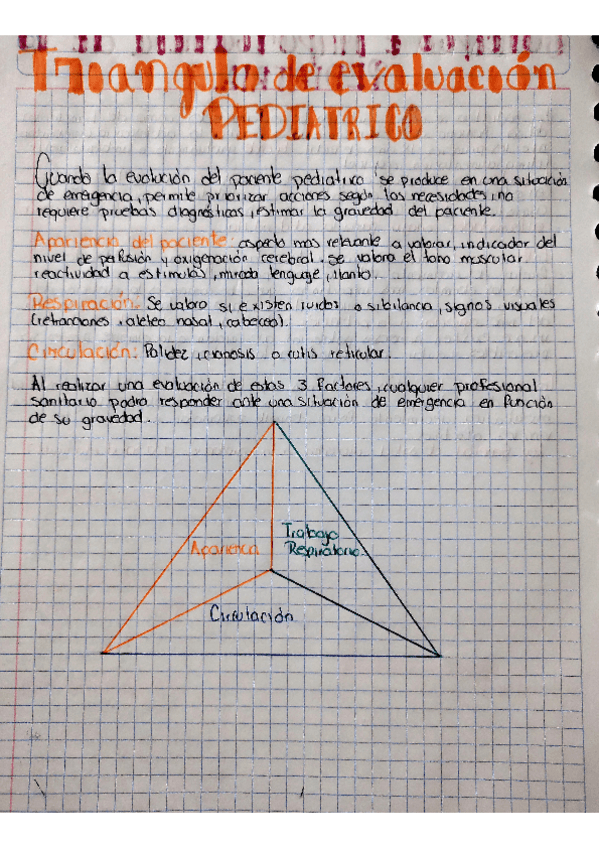 Triangulo de evaluación
PEDIATRICO
Cuando la evolución del paciente pediatrico se produce en una situación
de emergencia, permite priorizar acciones según las necesidades, no
requiere pruebas diagnósticas, estimar la gravedad del paciente.
Apariencia del paciente: aspecto mas relevante a valorar, indicador del
nivel de perfusión y oxigenación cerebral. Se valora el tono muscular
reactividad a estimulos, mirada lenguge, llanto.
Respiración: Se valora si existen ruidos o sibilancia, signos visuales
(retracciones, aleteo nasal, cabeceo).
Circulación: Palidez, cianosis o cutis reticular.
Al realizar una evaluación de estas 3 factores, cualquier profesional
sanitario podra responder ante una situación de emergencia en función
de su gravedad.
Trabajo
Apariencia Respiratorio
Circulación